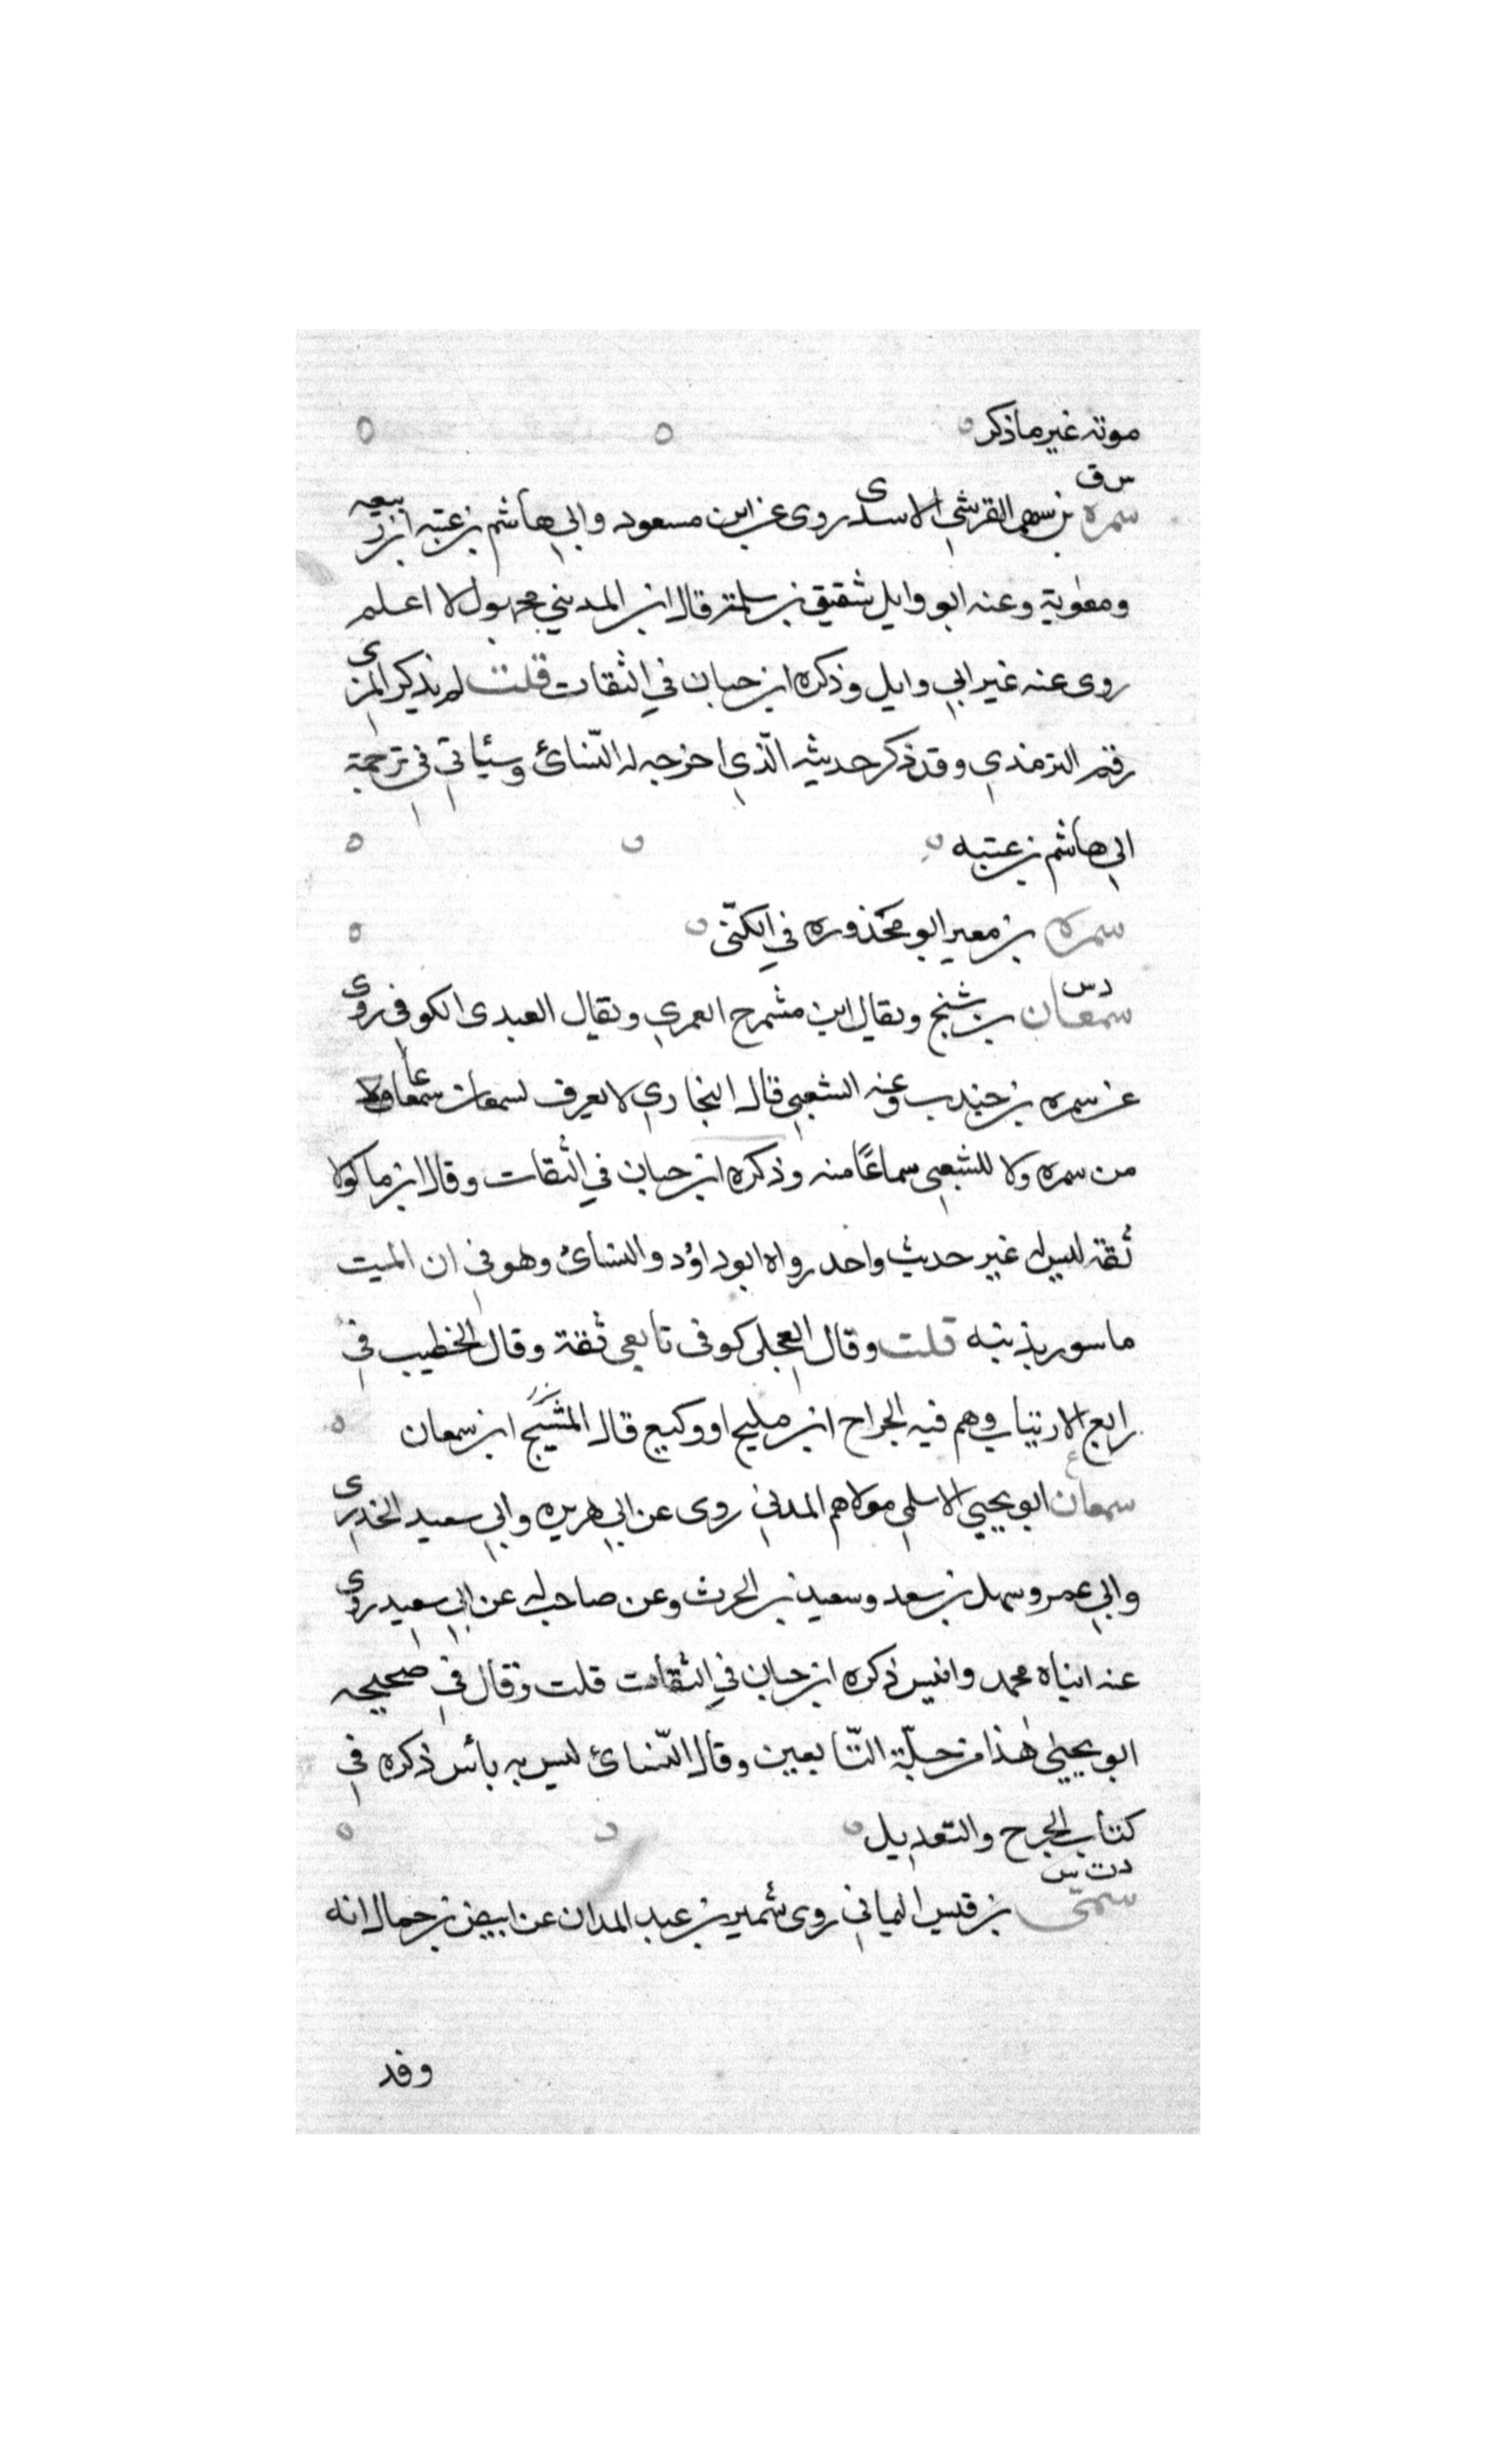 موته غير ماذكر
س ق
سمره بن سهم القرشي الاسدى روى عن ابن مسعود وابي هاشم بن عتبه ابن ربيعه
ومعوية وعنه ابو وايل شقيق بن سلمة قال ابن المديني مجهول لا اعلم
روى عنه غير ابي وايل وذكره ابن حبان في الثقات قلت لم يذكر المزى
رقم الترمذي وقد ذكر حديثه الّذي اخرجه له النّسائ وسيأتي في ترجمة
ابي هاشم بن عتبه
سمره بن معير ابو محذوره في الكنّى
د س
سمعان بن مشنج ويقال ابن مشمرج العمري ويقال العبدى الكوفي روى
عن سمره بن جندب وعنه الشعبي قال البخاري لا يعرف لسمعان سماعا
من سمره ولا للشعبي سماعًا منه وذكره ابن حبان في الثقات وقال ابن ماكولا
ثقة ليس له غير حديث واحد رواه ابو داؤد والنسائ وهو في ان الميت
ماسور بذنبه قلت وقال العجلى كوفى تابعي ثقة وقال الخطيب في
رابع الارتياب وهم فيه الجراح ابن مليح او وكيع قال المشنج ابن سمعان
ع
سمعان ابو يحيى الاسلمي مولاهم المدني روى عن ابي هريره وابي سعيد الخدرى
وابي عمر وسهل بن سعد وسعيد بن الحرث وعن صاحب له عن ابي سعيد روى
عنه ابناه محمد وانيس ذكره ابن حبان في الثقات قلت وقال في صحيحه
ابو يحيى هذا من جلّة التّابعين وقال النّسائ ليس به بأس ذكره في
كتاب الجرح والتعديل
د ت س
سمّى بن قيس اليماني روى شمير بن عبد المدان عن ابيض بن حمال انه
وفد